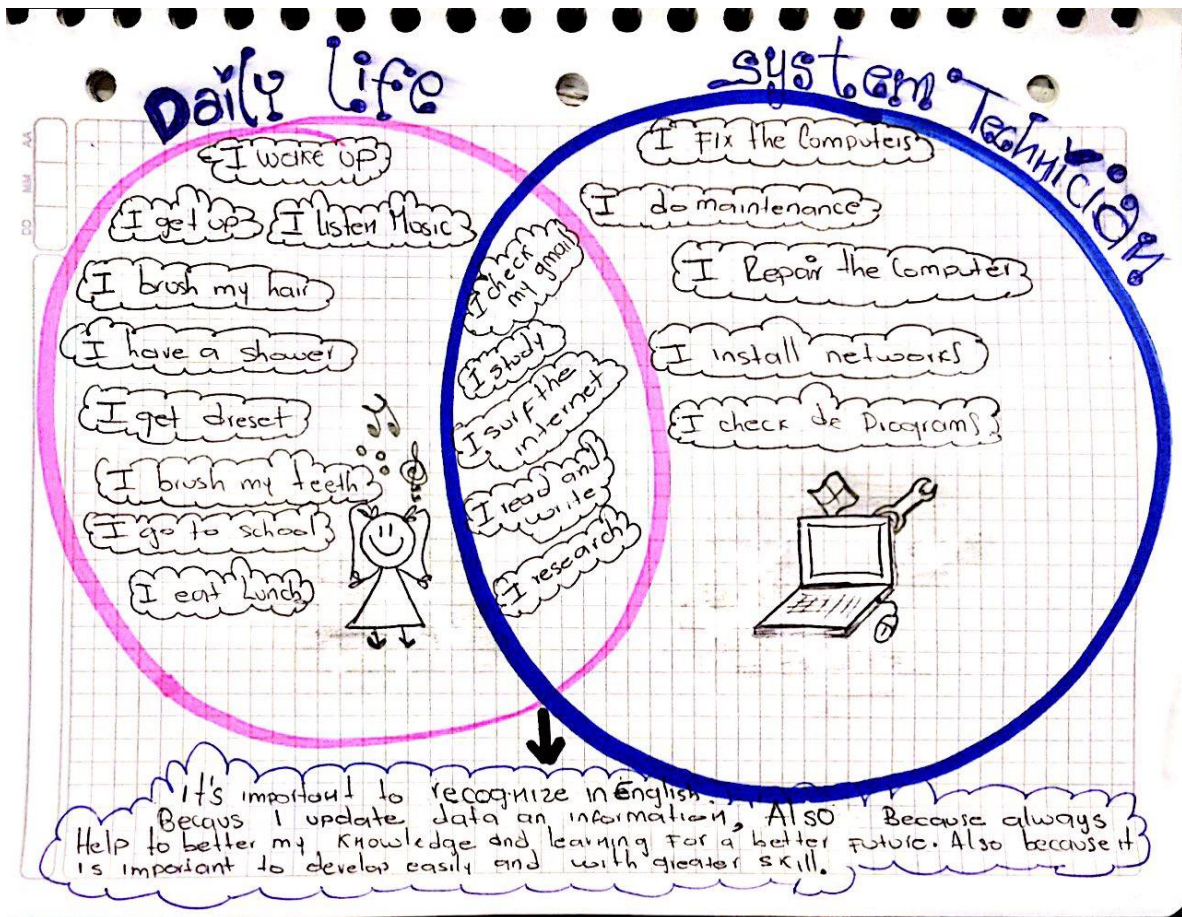 Daily life
system Technician
I wake up
I get up
I listen Music
I brush my hair
I have a shower
I get dreset
I brush my teeth
I go to school
I eat Lunch
I check
my gmail
I study
I surf the
internet
I read and
write
I research
I Fix the Computers
I do maintenance
I Repair the Computer
I install networks
I check de Programs
It's important to recognize in English.
Becaus I update data an information, Also Because always
Help to better my knowledge and learning for a better future. Also because it
is important to develop easily and with greater skill.
AA
MM
DD